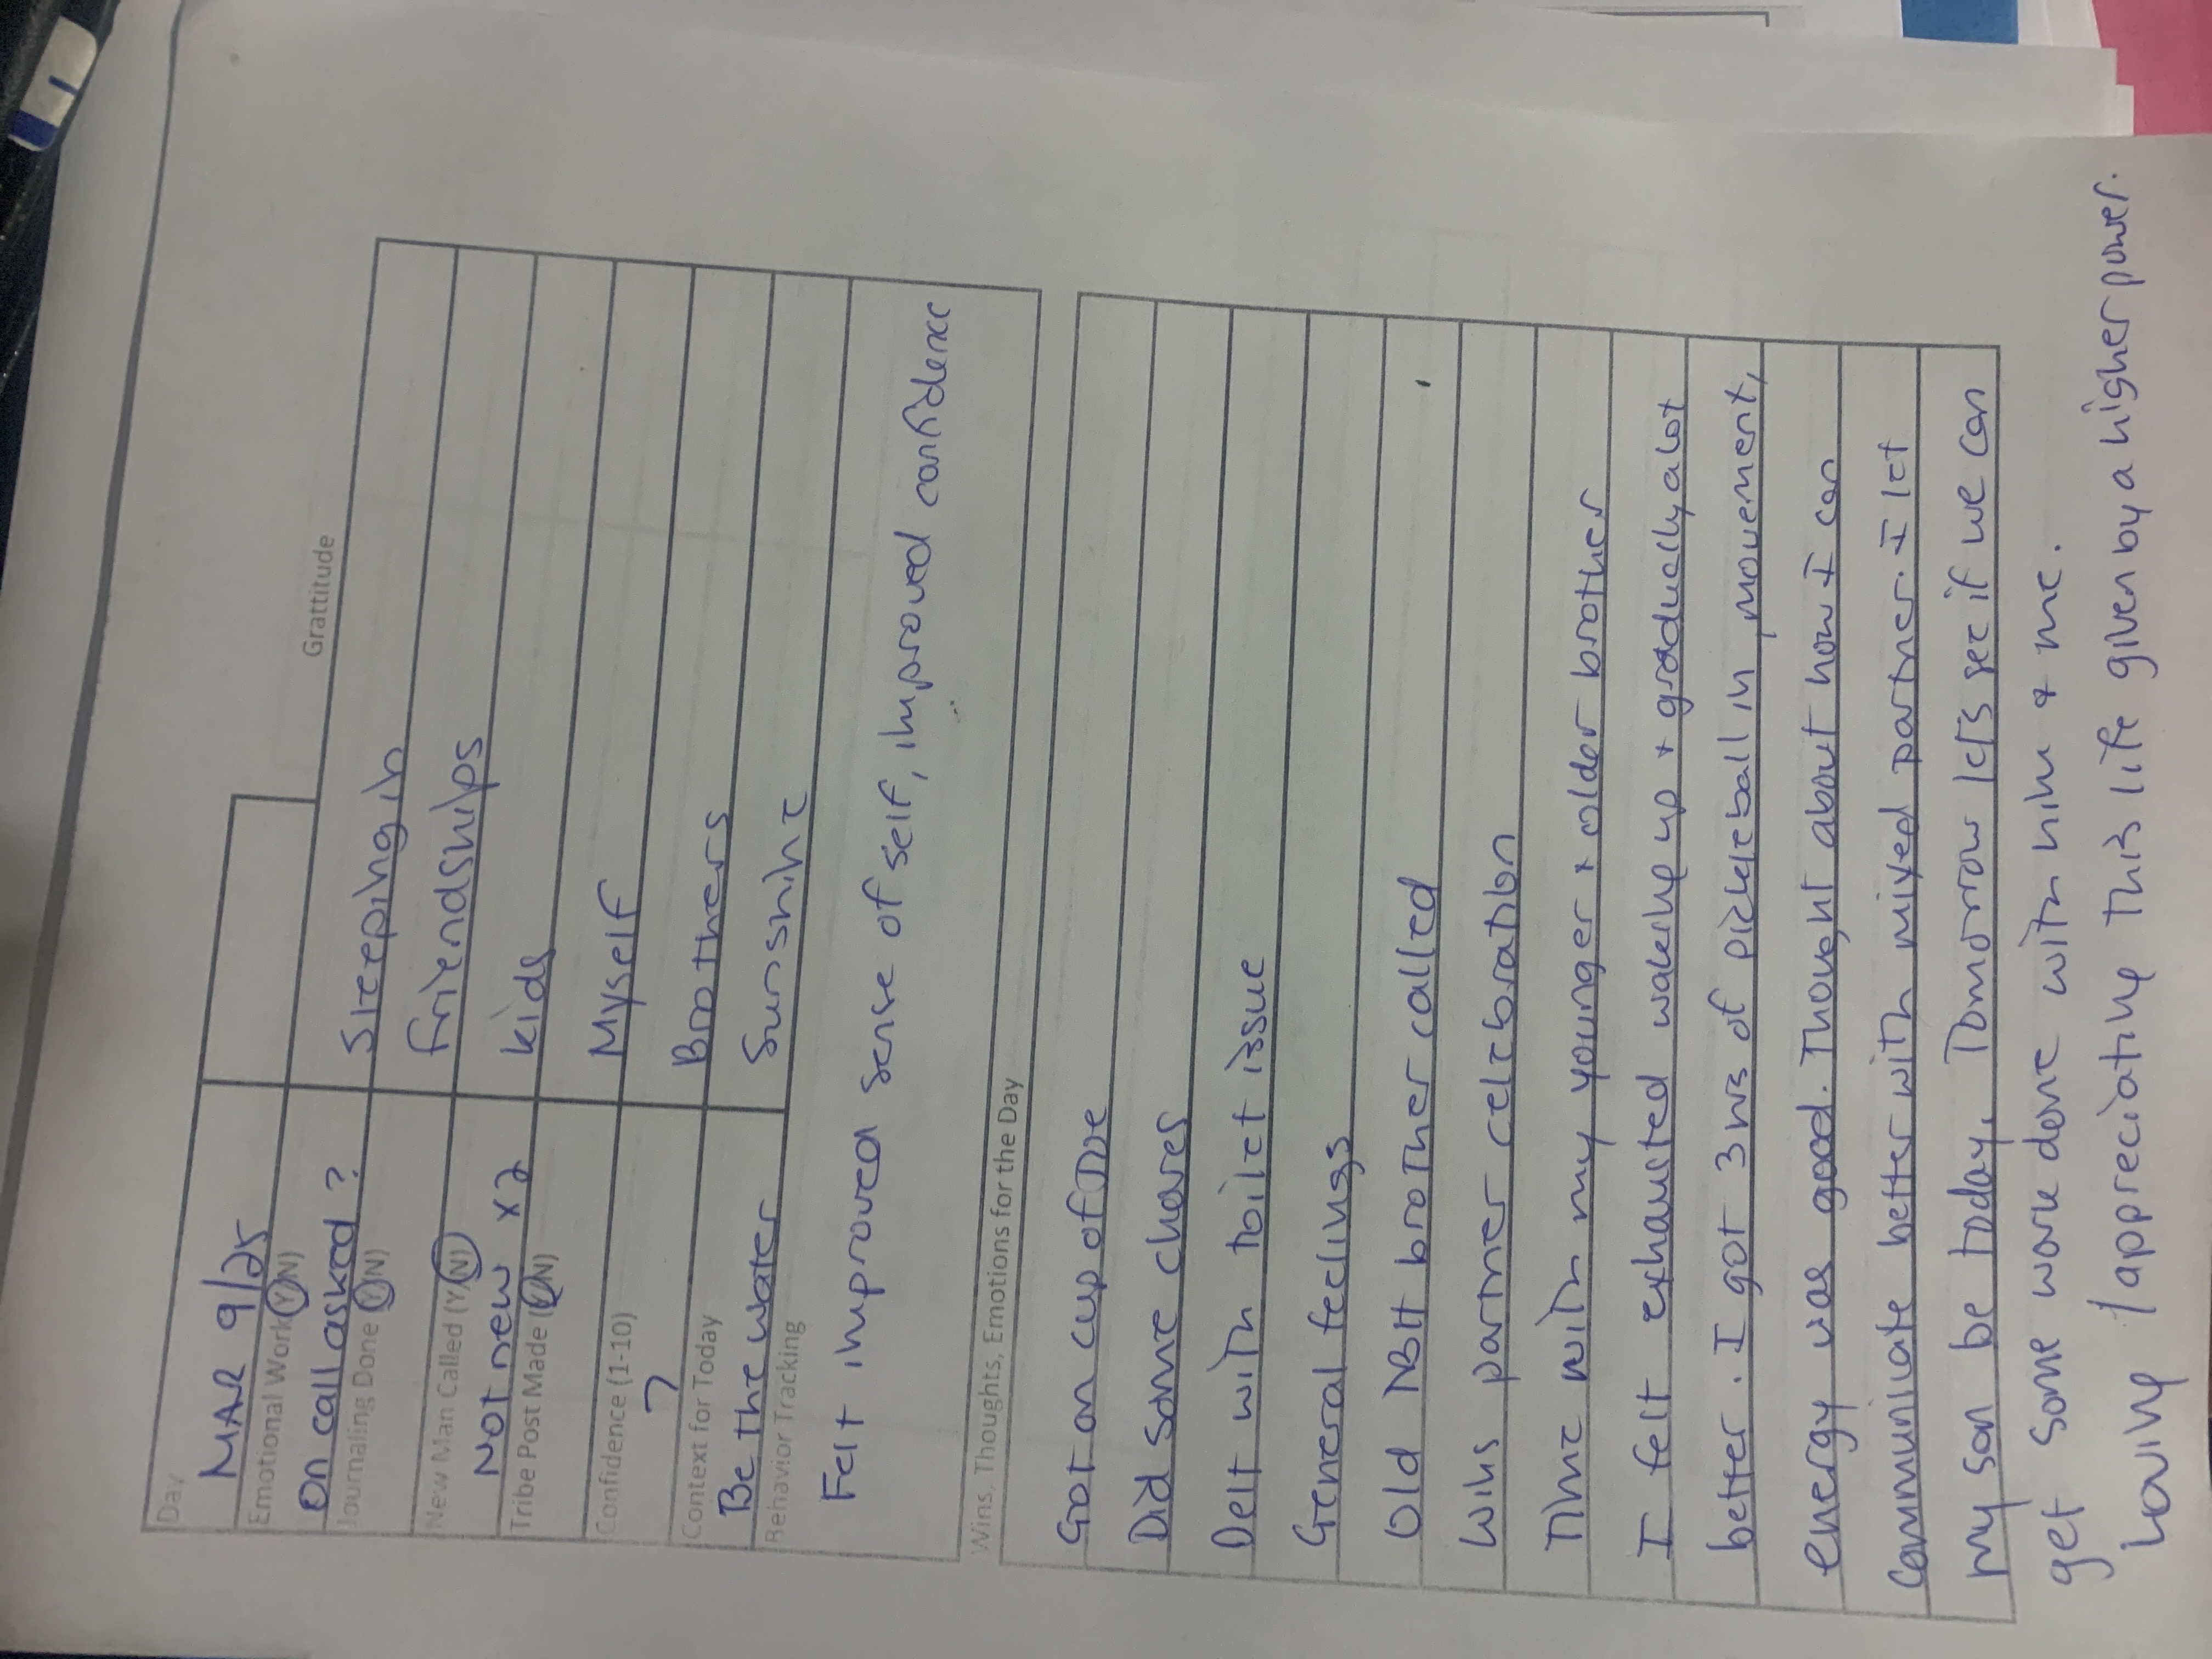 Day
MAR 9/25
Emotional Work (Y/N)
On call asked?
Journaling Done (Y/N)
New Man Called (Y/N)
Not new x2
Tribe Post Made (Y/N)
Confidence (1-10)
7
Context for Today
Be the water
Behavior Tracking
Felt improved sense of self, improved confidence
Grattitude
Sleeping in
friendships
kids
Myself
Brothers
Sunshine
Wins, Thoughts, Emotions for the Day
Got an cup of
Did some chores
Delt with toilet issue
General feelings
Old brother called
Wins partner celebration
Time with my younger + older brother
I felt exhausted waking up + gradually alot
better. I got 3 hrs of pickleball in, movement,
energy was good. Thought about how I can
communicate better with mixed partner. I let
my son be today. Tomorrow let's see if we can
get some work done with him + me.
Loving / appreciating this life given by a higher power.